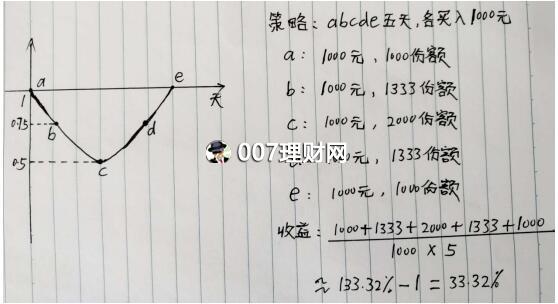 策略：abcde五天，各买入1000元
a：1000元，1000份额
b：1000元，1333份额
c：1000元，2000份额
元，1333份额
e：1000元，1000份额
收益：1000+1333+2000+1333+1000
1000×5
≈133.32%-1=33.32%
a
e
1
天
0.75
b
d
0.5
c
007理财网